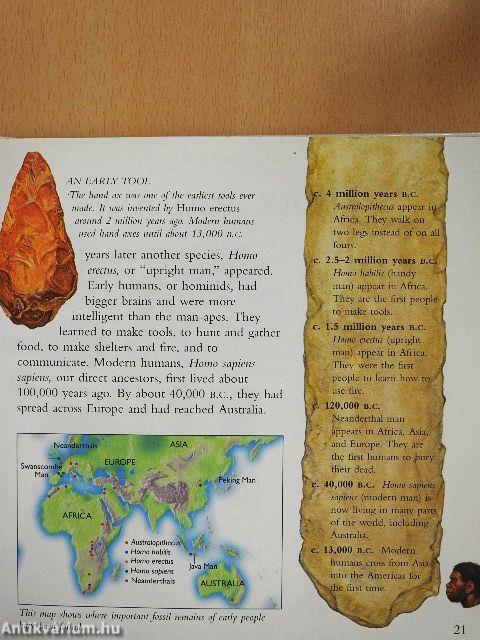 AN EARLY TOOL
The hand ax was one of the earliest tools ever
made. It was invented by Homo erectus
around 2 million years ago. Modern humans
used hand axes until about 13,000 B.C.
years later another species, Homo
erectus, or "upright man," appeared.
Early humans, or hominids, had
bigger brains and were more
intelligent than the man-apes. They
learned to make tools, to hunt and gather
food, to make shelters and fire, and to
communicate. Modern humans, Homo sapiens
sapiens, our direct ancestors, first lived about
100,000 years ago. By about 40,000 B.C., they had
spread across Europe and had reached Australia.
Neanderthals
ASIA
EUROPE
Swanscombe
Man
Peking Man
AFRICA
Australopithecus
Homo habilis
Homo erectus
Homo sapiens
Neanderthals
Java Man
AUSTRALIA
This map shows where important fossil remains of early people
c. 4 million years B.C.
Australopithecus appear in
Africa. They walk on
two legs instead of on all
fours.
c. 2.5–2 million years B.C.
Homo habilis (handy
man) appear in Africa.
They are the first people
to make tools.
c. 1.5 million years B.C.
Homo erectus (upright
man) appear in Africa.
They were the first
people to learn how to
use fire.
c. 120,000 B.C.
Neanderthal man
appears in Africa, Asia,
and Europe. They are
the first humans to bury
their dead.
c. 40,000 B.C. Homo sapiens
sapiens (modern man) is
now living in many parts
of the world, including
Australia.
c. 13,000 B.C. Modern
humans cross from Asia
into the Americas for
the first time.
21
Antikvarium.hu